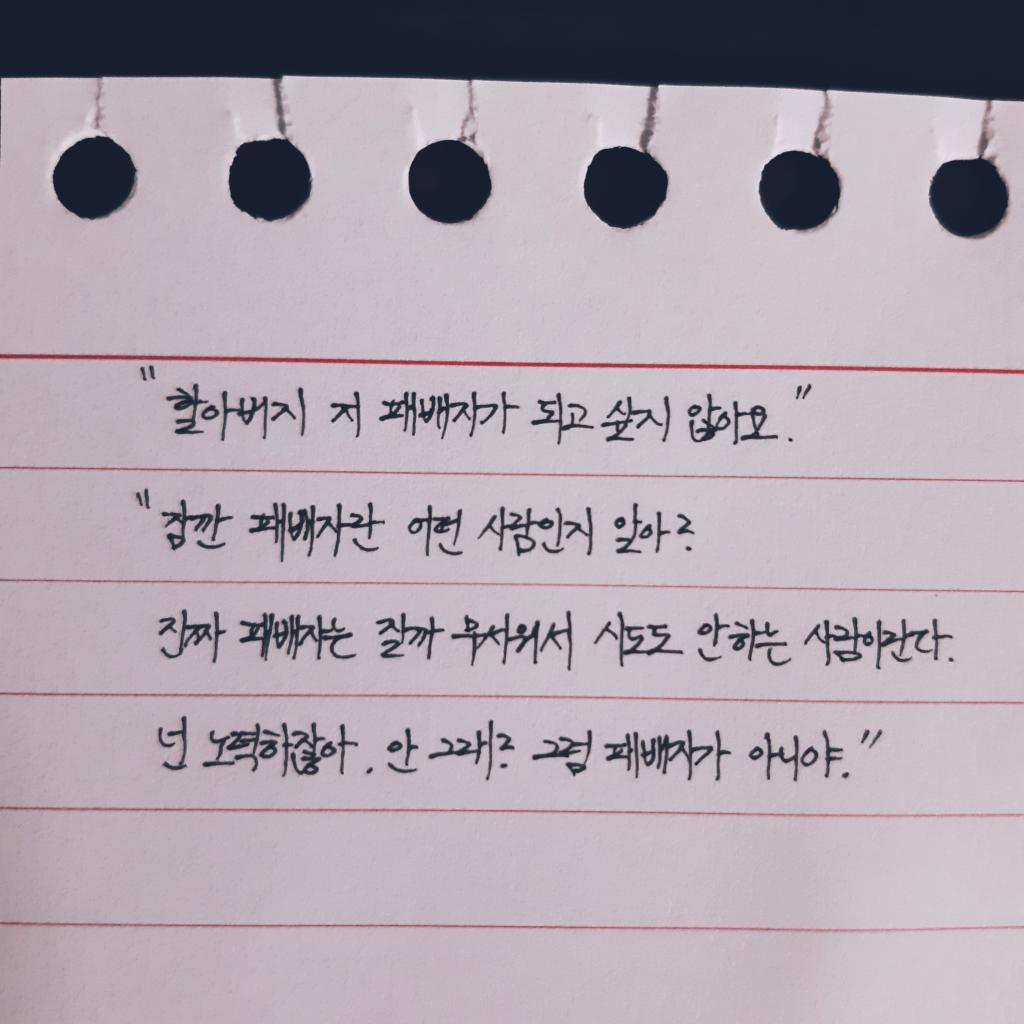 "할아버지 저 패배자가 되고 싶지 않아요."
"잠깐 패배자란 어떤 사람인지 알아?
진짜 패배자는 질까 무서워서 시도도 안하는 사람이란다.
넌 노력하잖아. 안 그래? 그럼 패배자가 아니야."